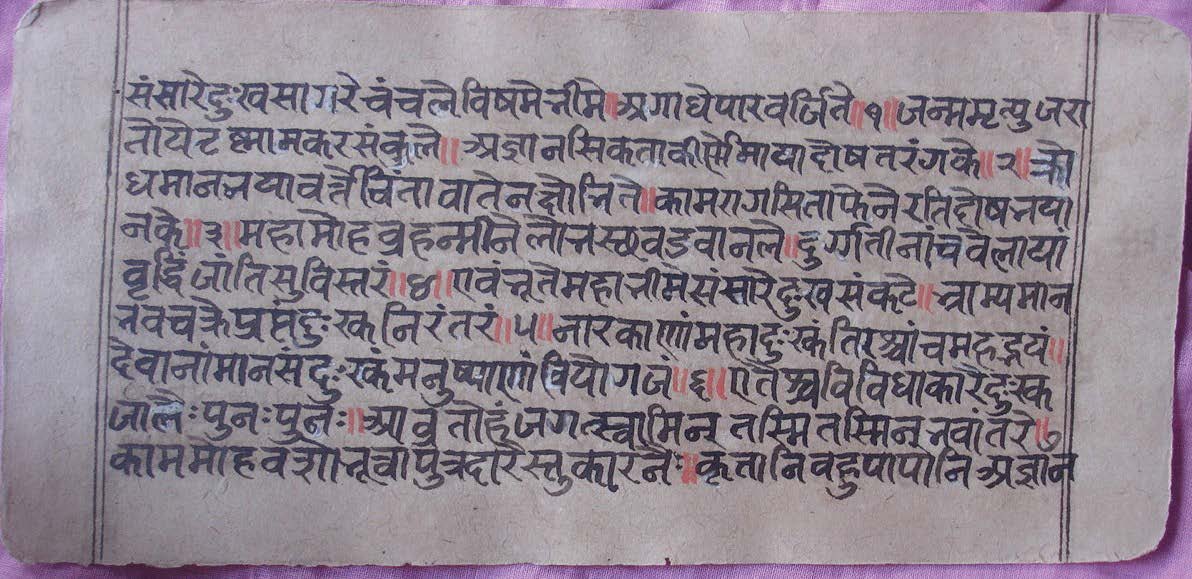 संसारेदुःखसागरे चंचलेविषमेभीमे॥अगाधेपारवर्जिते॥१॥जन्ममृत्युजरा
तोयेतृष्णामकरसंकुले॥अज्ञानसिकताकीर्णेमायादोषतरंगके॥२॥क्रो
धमानभयावर्त्तेचिंतावातेनक्षोभिते॥कामरागसिताफेनेरतिद्वेषभया
नके॥३॥महामोहवृहन्मीनेलोभस्छवडवानले॥दुर्गतीनांचवेलायां
वृद्धिंजांतिसुविस्तरं॥४॥एवंभूतेमहाभीमेसंसारेदुःखसंकटे॥भ्राम्यमान
भवचक्रेप्राप्तंदुःस्कनिरंतरं॥५॥नारकाणांमहादुःस्कंतिरश्चांचमहद्भयं॥
देवानांमानसंदुःस्कंमनुष्याणांवियोगजं॥६॥एतैश्चविविधाकारेदुःस्क
जालैःपुनःपुनः॥आवृतोहंजगत्स्वामिन् तस्मितस्मिन् भवांतरे॥७
काममोहवशोभूत्वापुत्रदारैस्तुकारनैः॥कृतानिवहुपापानिअज्ञान